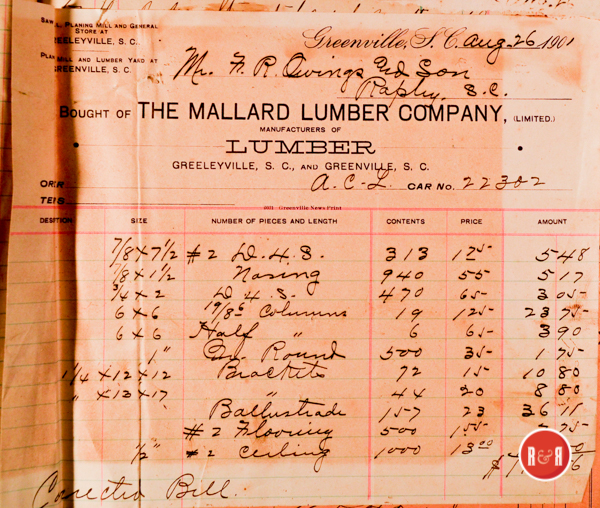 PLANING MILL AND GENERAL
STORE AT
GREELEYVILLE, S. C.
MILL AND LUMBER YARD AT
GREENVILLE, S. C.
Greenville, S. C. Aug. 26 1901
Mr. F. R. Owings and Son
S. C.
BOUGHT OF THE MALLARD LUMBER COMPANY, (LIMITED.)
MANUFACTURERS OF
LUMBER
GREELEYVILLE, S. C., AND GREENVILLE, S. C.
A. C. L. CAR NO. 22302
Greenville News Print
SIZE NUMBER OF PIECES AND LENGTH CONTENTS PRICE AMOUNT
7/8 X 7 1/2 #2 D. 4. S. 313 5 48
7/8 X 1 1/2 Nosing 940 55 5 17
3/4 X 2 D. 4. S. 470 65 3 05
6 X 6 Columns 19 125 23 75
6 X 6 Half " 6 65 3 90
1" Qr. Round 500 35 1 75
1 1/4 X 12 X 12 Brackets 72 15 10 80
" X 13 X 17 " 44 20 8 80
Ballustrade 157 23 36 11
#2 Flooring 500 155
1/2" #2 Ceiling 1000 13 00
$
Corrected Bill.
R&R